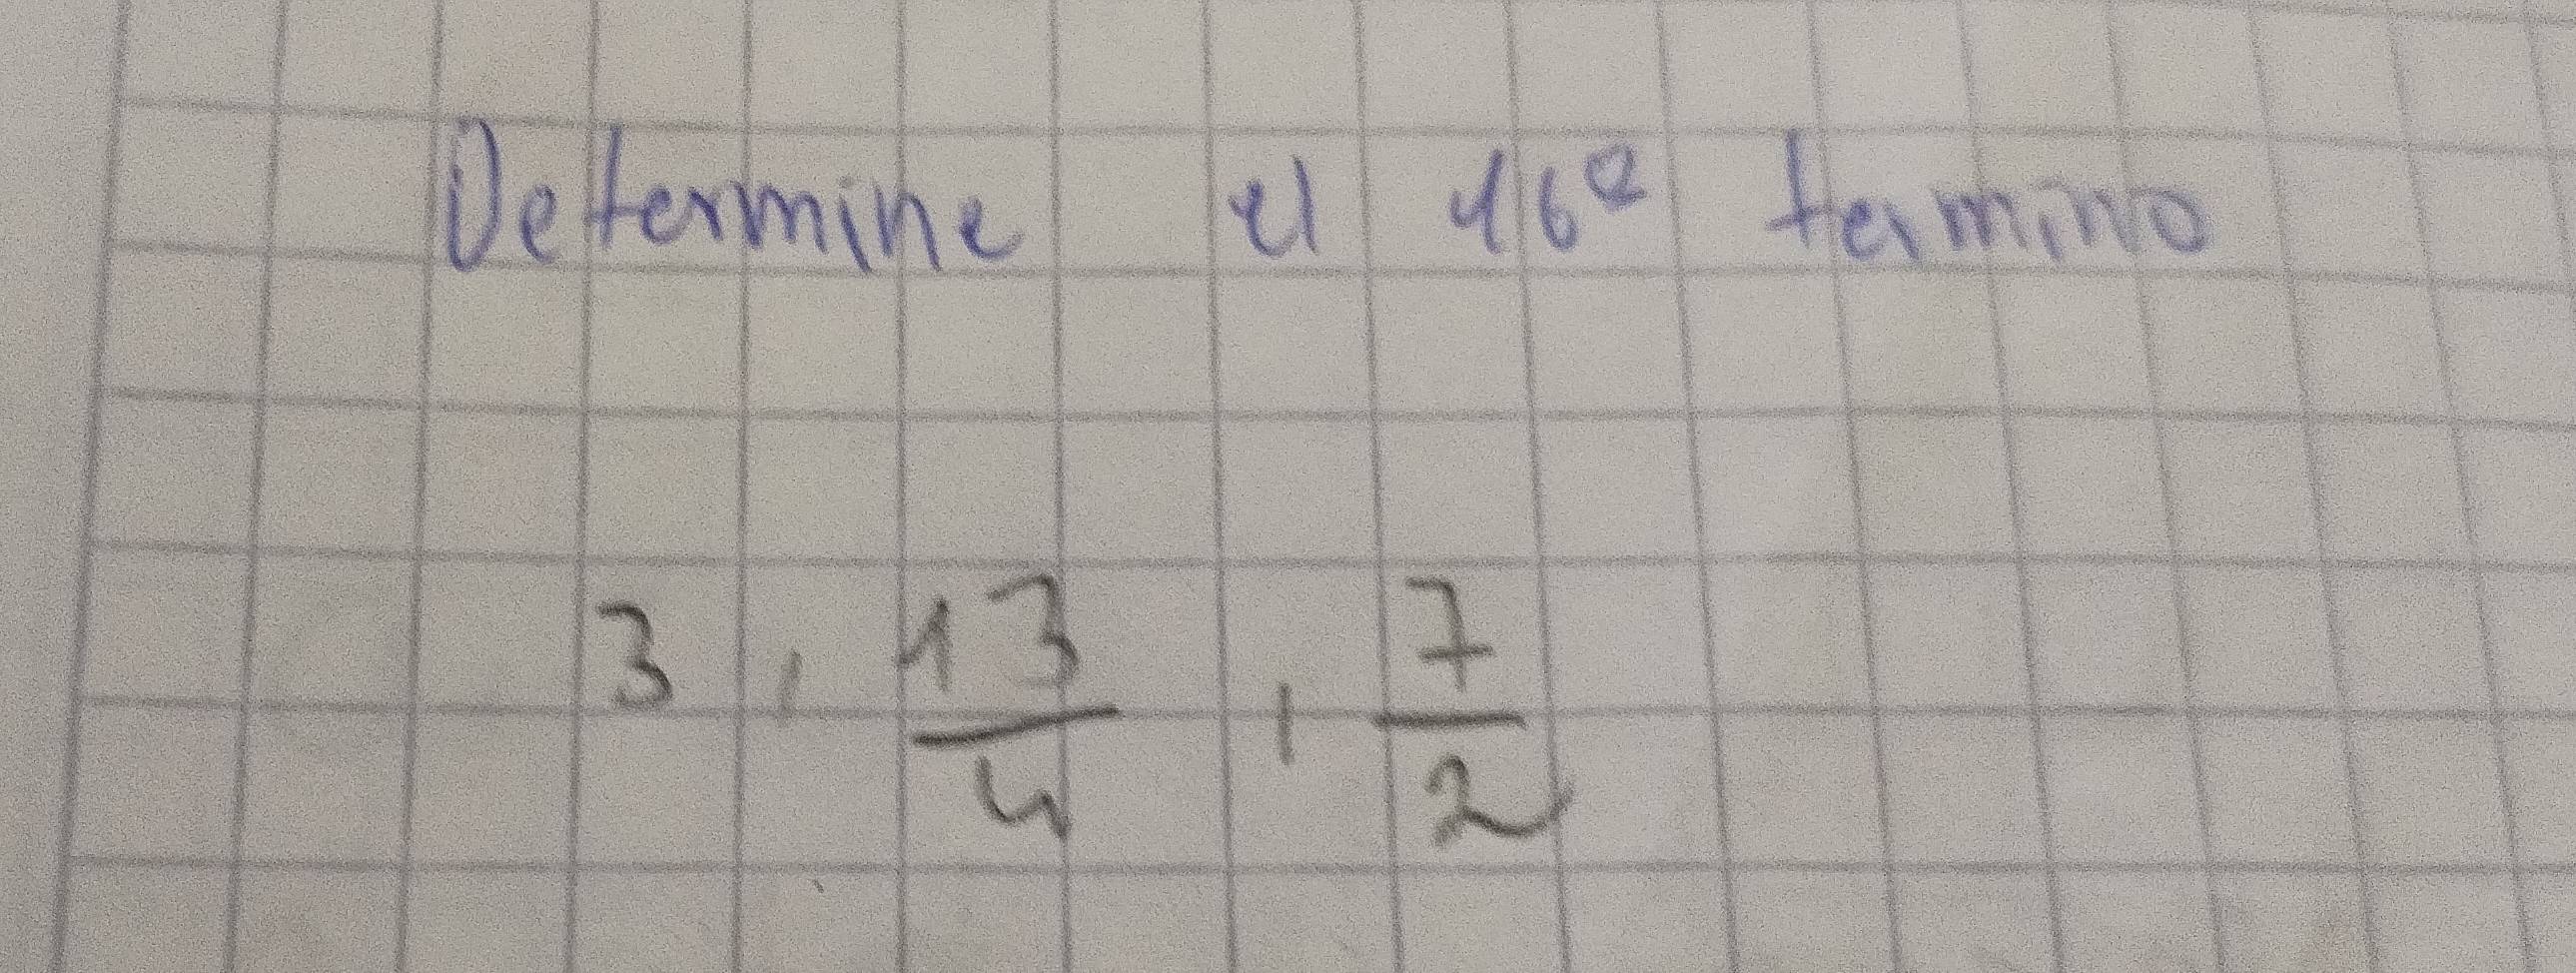 Determine el 16º termino
3, 13/4, 7/2